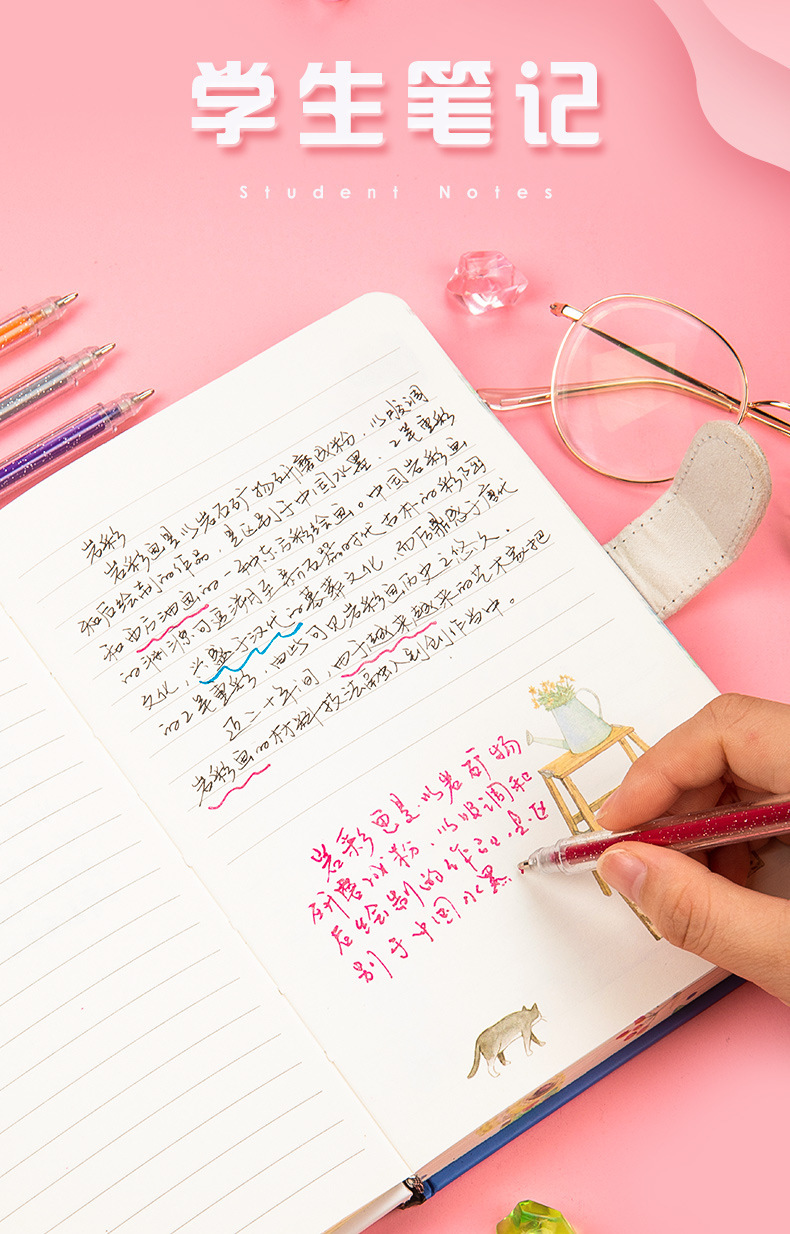 学生笔记
Student Notes
岩彩
岩彩画是以岩石矿物研磨成粉，以胶调
和后绘制的作品，是区别于中国水墨，工笔重彩
和西方油画的一种东方彩绘画。中国岩彩画
的渊源可追溯至新石器时代古朴的彩陶
文化，兴盛于汉代的墓葬文化，而后鼎盛于唐代
的工笔重彩，由此可见岩彩画历史之悠久。
近二十年间，由于越来越来的艺术家把
岩彩画的材料技法融入到创作当中。
岩彩画是以岩矿物
研磨成粉，以胶调和
后绘制的作品，是区
别于中国水墨